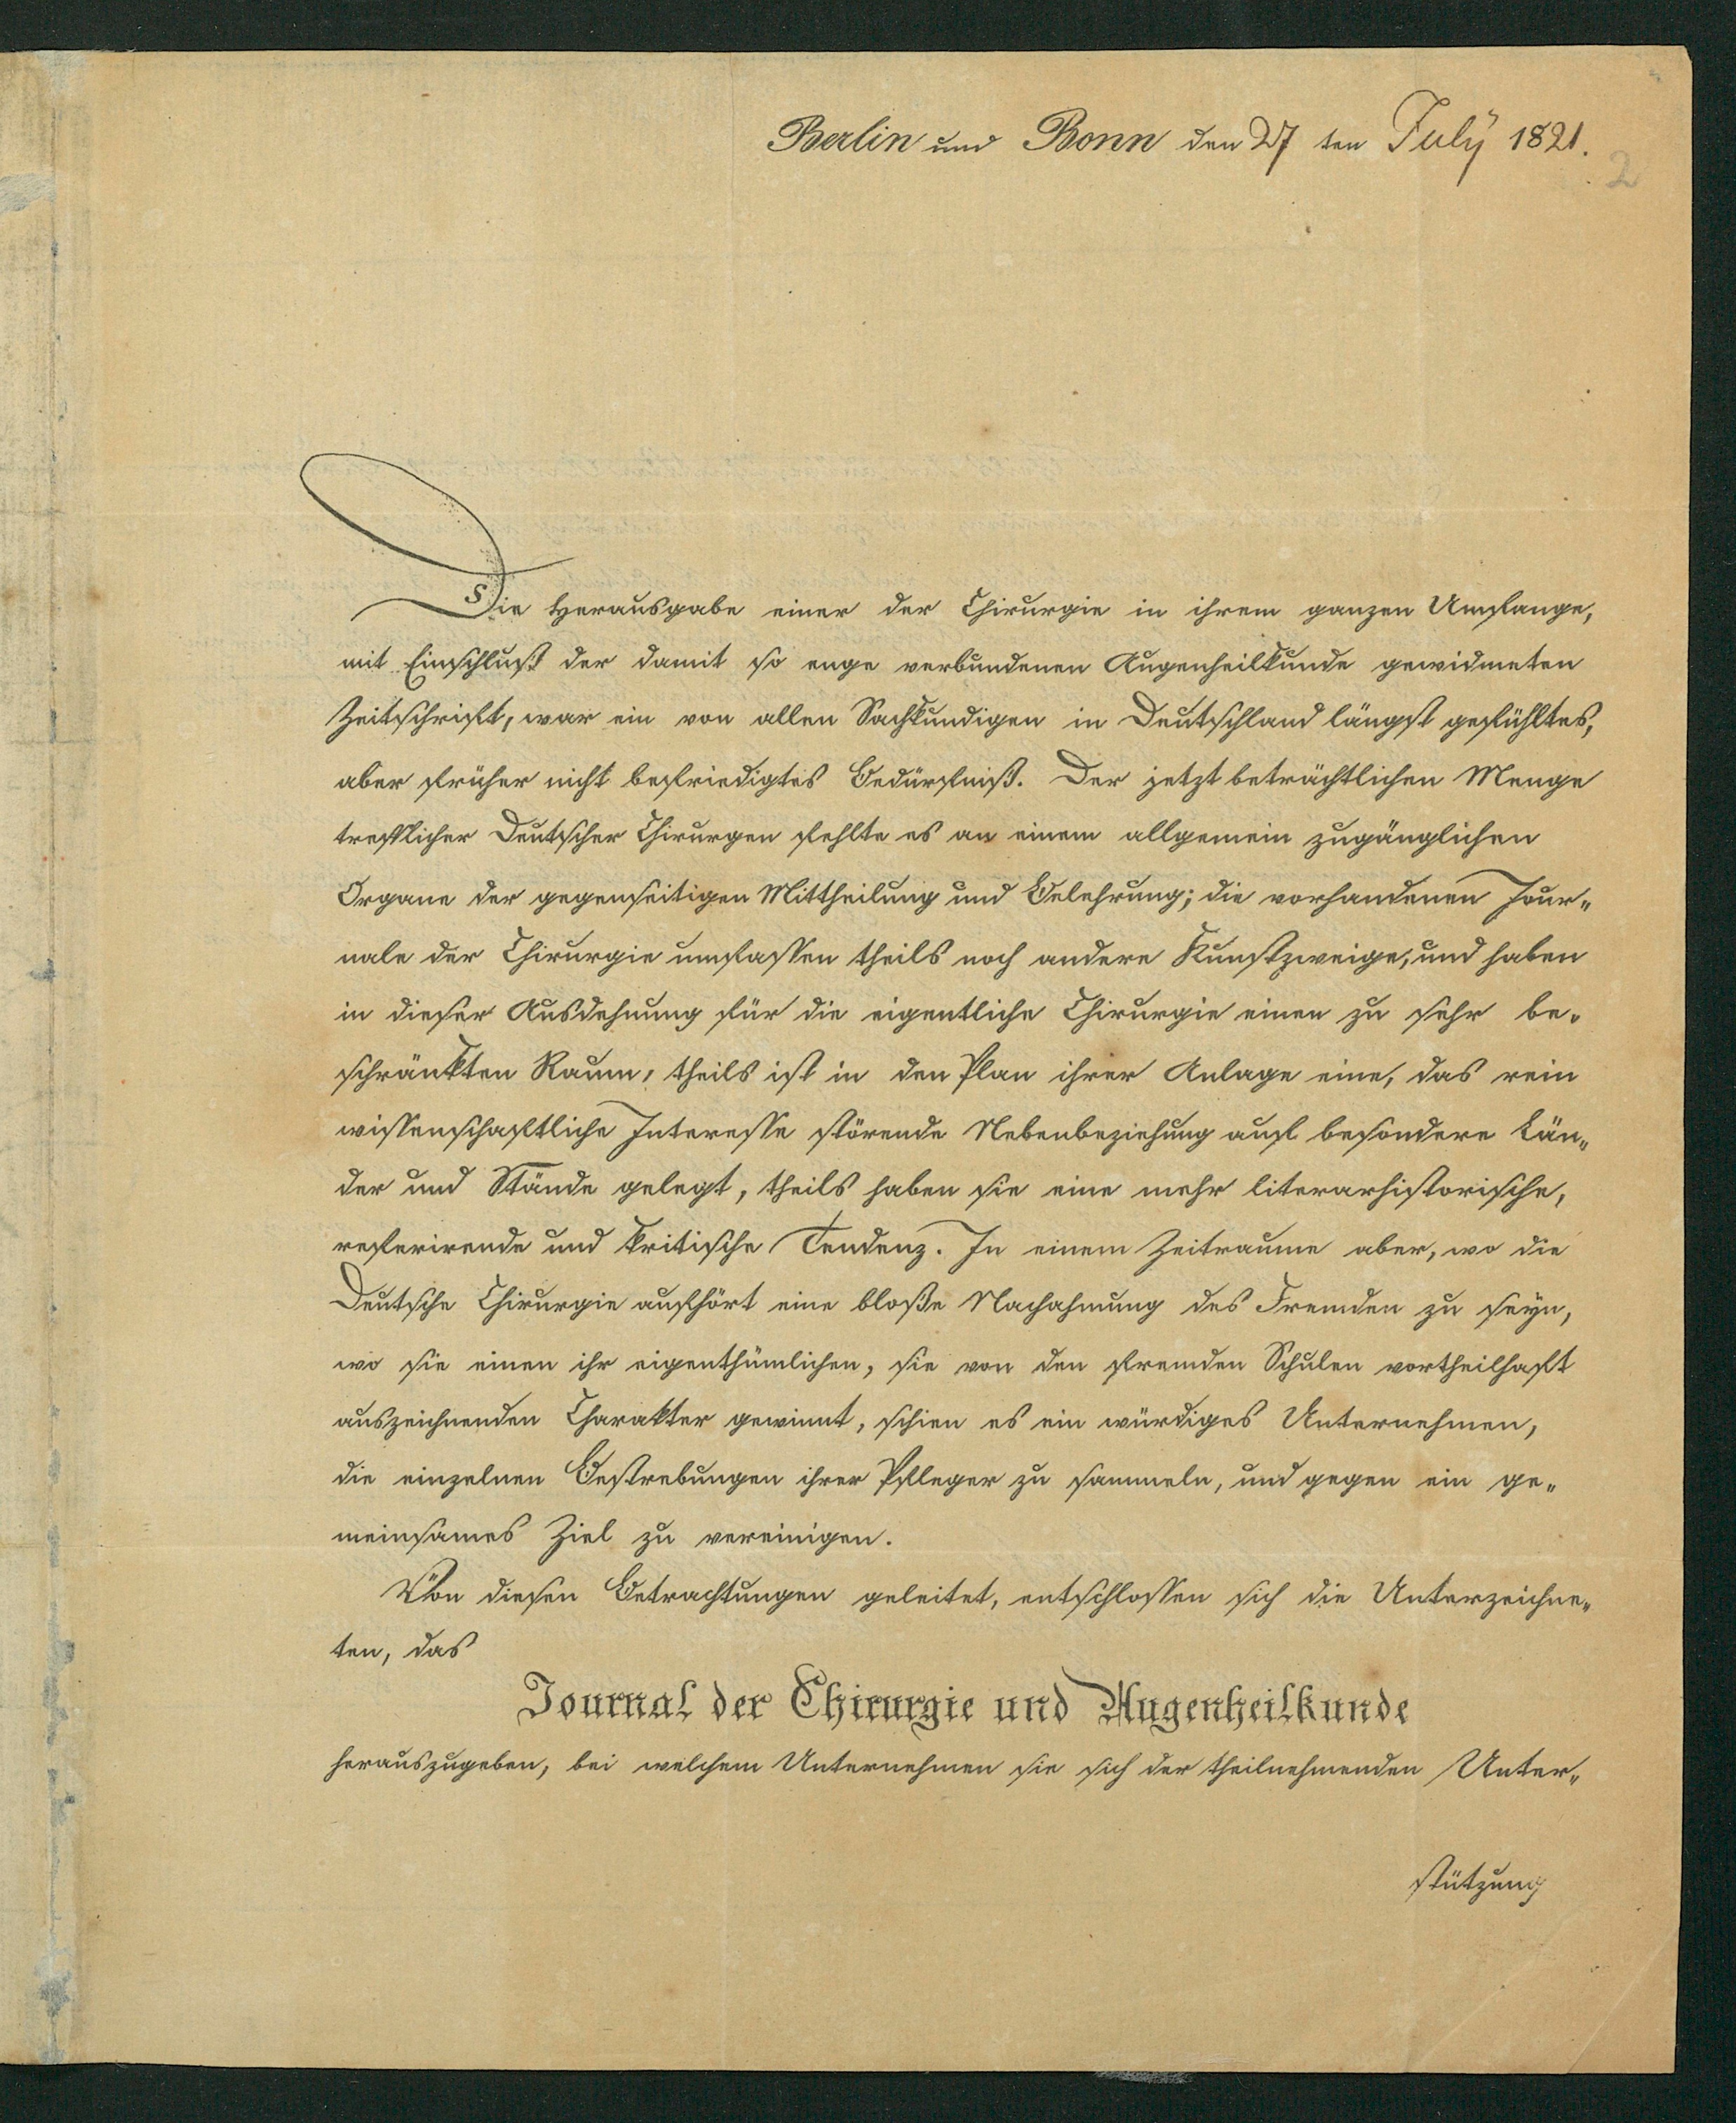 Berlin und Bonn den 27 ten July 1821.
2
Die Herausgabe einer der Chirurgie in ihrem ganzen Umfange,
mit Einschluß der damit so enge verbundenen Augenheilkunde gewidmeten
Zeitschrift, war ein von allen Sachkundigen in Deutschland längst gefühltes,
aber früher nicht befriedigtes Bedürfniß. Der jetzt beträchtlichen Menge
trefflicher Deutscher Chirurgen fehlte es an einem allgemein zugänglichen
Organe der gegenseitigen Mittheilung und Belehrung; die vorhandenen Jour„
nale der Chirurgie umfassen theils noch andere Kunstzweige, und haben
in dieser Ausdehnung für die eigentliche Chirurgie einen zu sehr be„
schränkten Raum, theils ist in den Plan ihrer Anlage eine, das rein
wissenschaftliche Interesse störende Nebenbeziehung auf besondere Län„
der und Stände gelegt, theils haben sie eine mehr literarhistorische,
referirende und kritische Tendenz. In einem Zeitraume aber, wo die
Deutsche Chirurgie aufhört eine bloße Nachahmung des Fremden zu seyn,
wo sie einen ihr eigenthümlichen, sie von den fremden Schulen vortheilhaft
auszeichnenden Charakter gewinnt, schien es ein würdiges Unternehmen,
die einzelnen Bestrebungen ihrer Pfleger zu sammeln, und gegen ein ge„
meinsames Ziel zu vereinigen.
Von diesen Betrachtungen geleitet, entschlossen sich die Unterzeichne„
ten, das
Journal der Chirurgie und Augenheilkunde
herauszugeben, bei welchem Unternehmen sie sich der theilnehmenden Unter„
stützung